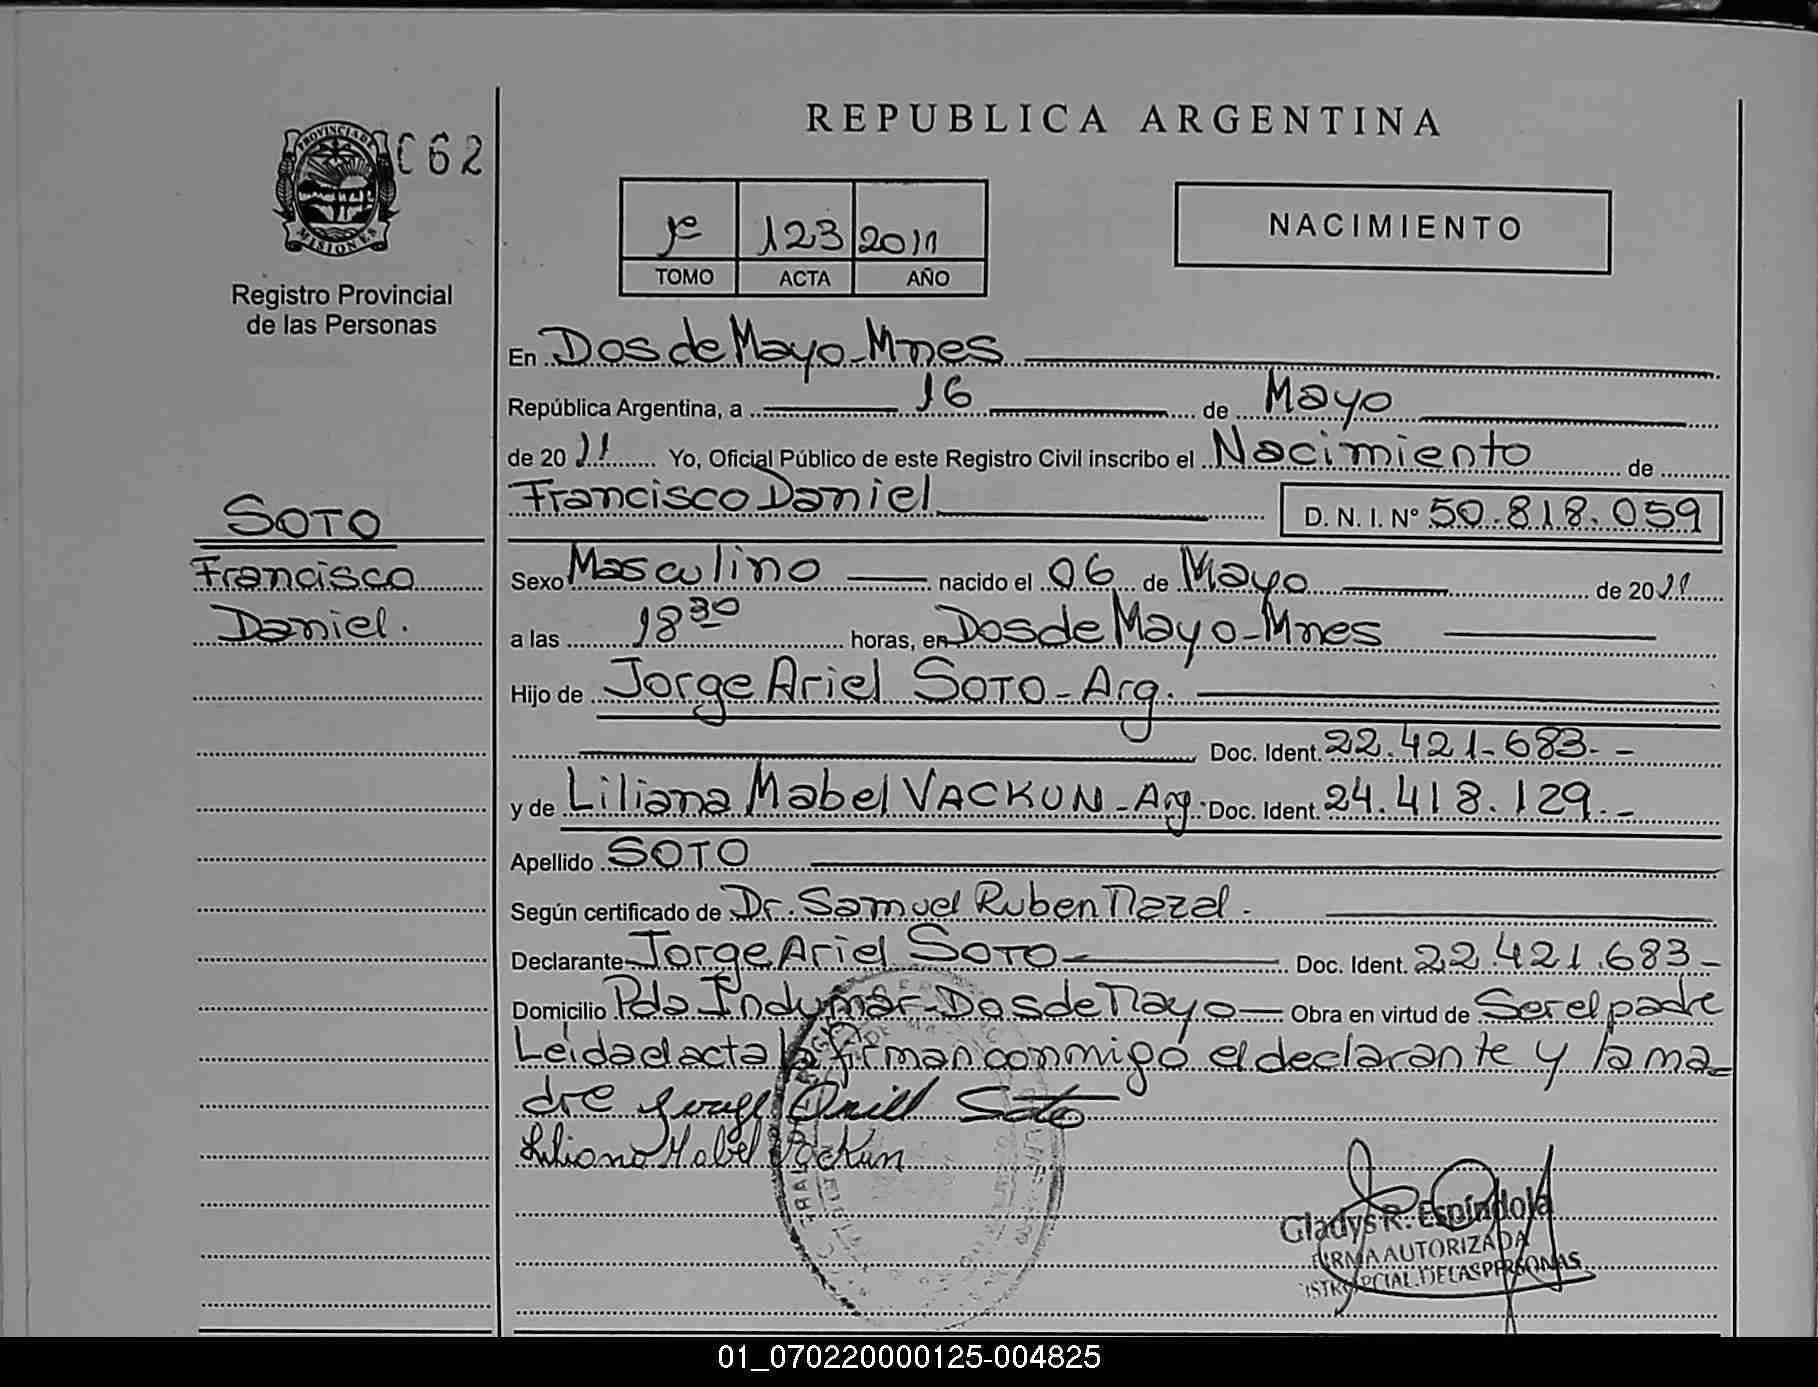 REPUBLICA ARGENTINA
PROVINCIA DE
MISIONES
C62
Registro Provincial
de las Personas
1º 123 2011
TOMO ACTA AÑO
NACIMIENTO
En Dos de Mayo-Mnes
República Argentina, a 16 de Mayo
de 20 11 Yo, Oficial Público de este Registro Civil inscribo el Nacimiento de
Francisco Daniel D. N. I. Nº 50.818.059
SOTO
Francisco
Daniel.
Sexo Masculino nacido el 06 de Mayo de 20 11
a las 18 30 horas, en Dos de Mayo-Mnes
Hijo de Jorge Ariel SOTO-Arg.
Doc. Ident. 22.421-683.-
y de Liliana Mabel VACKUN-Arg. Doc. Ident. 24.418.129.-
Apellido SOTO
Según certificado de Dr. Samuel Ruben Nazal.
Declarante Jorge Ariel SOTO Doc. Ident. 22.421.683-
Domicilio Pda Indumar-Dos de Mayo Obra en virtud de Ser el padre
Leida el acta la firman conmigo el declarante y la ma-
dre Jorge Ariel Soto
Liliana Mabel Vackun
Gladys R. Espíndola
FIRMA AUTORIZADA
PCIAL. DE LAS PERSONAS
01_070220000125-004825